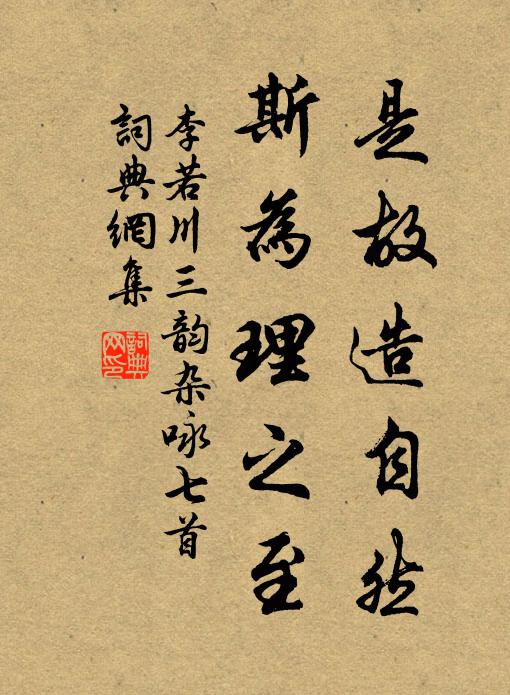 是故造自然
斯為理之至
李若川三韵杂咏七首
詞典網集
詞典
网印